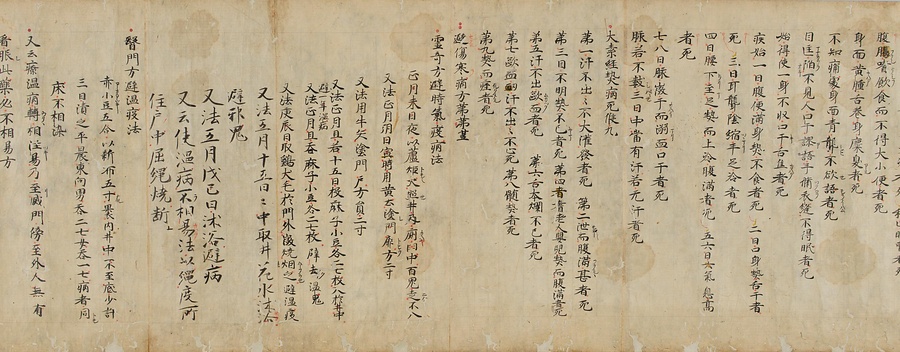 腹脹嗜飲食而不得大小便者死
身而黄腫舌巻身糜臭者死
不知痛處身面青聾不欲語者死
目眶陥不見人口干譫語手循衣縫不得眠者死
始得使一身不収口干舌焦者死
疾始一日腹便満身熱不食者死 二日口身熱舌干者
死 三日耳聾陰縮手足冷者死
四日腰下至足熱而上冷腹満者死 五六日氣息高
者死
七八日脈微干而溺血口干者死
脈若不數三日中當有汗若无汗者死
大素經熱病死候九
第一汗不出々不大灌發者死 第二泄而腹満甚者死
第三目不明熱不已者死 第四耆老人嬰児熱而腹満者死
第五汗不出歐血者死 第六舌本爛不已者死
第七欬血衄汗不出々不至足死 第八髓熱者死
第九熱而痙者死
避傷寒病方第
霊奇方避時氣疫病法
正月未日夜以蘆炬火照井及廁中百鬼走不入
又法正月朔日寅時用黄土塗門扉方二寸
又法用牛矢塗門戸方員二寸
又法正月旦若十五日投麻子小豆各二七枚入井中
避一年温病
又法正月旦呑麻子小豆各二七枚辟去温鬼
又法庚辰日取鶏犬毛於門外微燒烟之避温疫
又法五月十五日日中取井花水沐浴
避邪鬼
又法五月戊己日沐浴避病
又云使温病不相易法以繩度所
住戸中屈繩燒断
醫門方避温疫法
赤小豆五合以新布五寸裹内井中不至底少許
三日漬之平晨東向男呑二七女呑一七病者同
床不相染
又云療温病轉相注易乃至滅門傍至外人無有
看脈此藥必不相易方